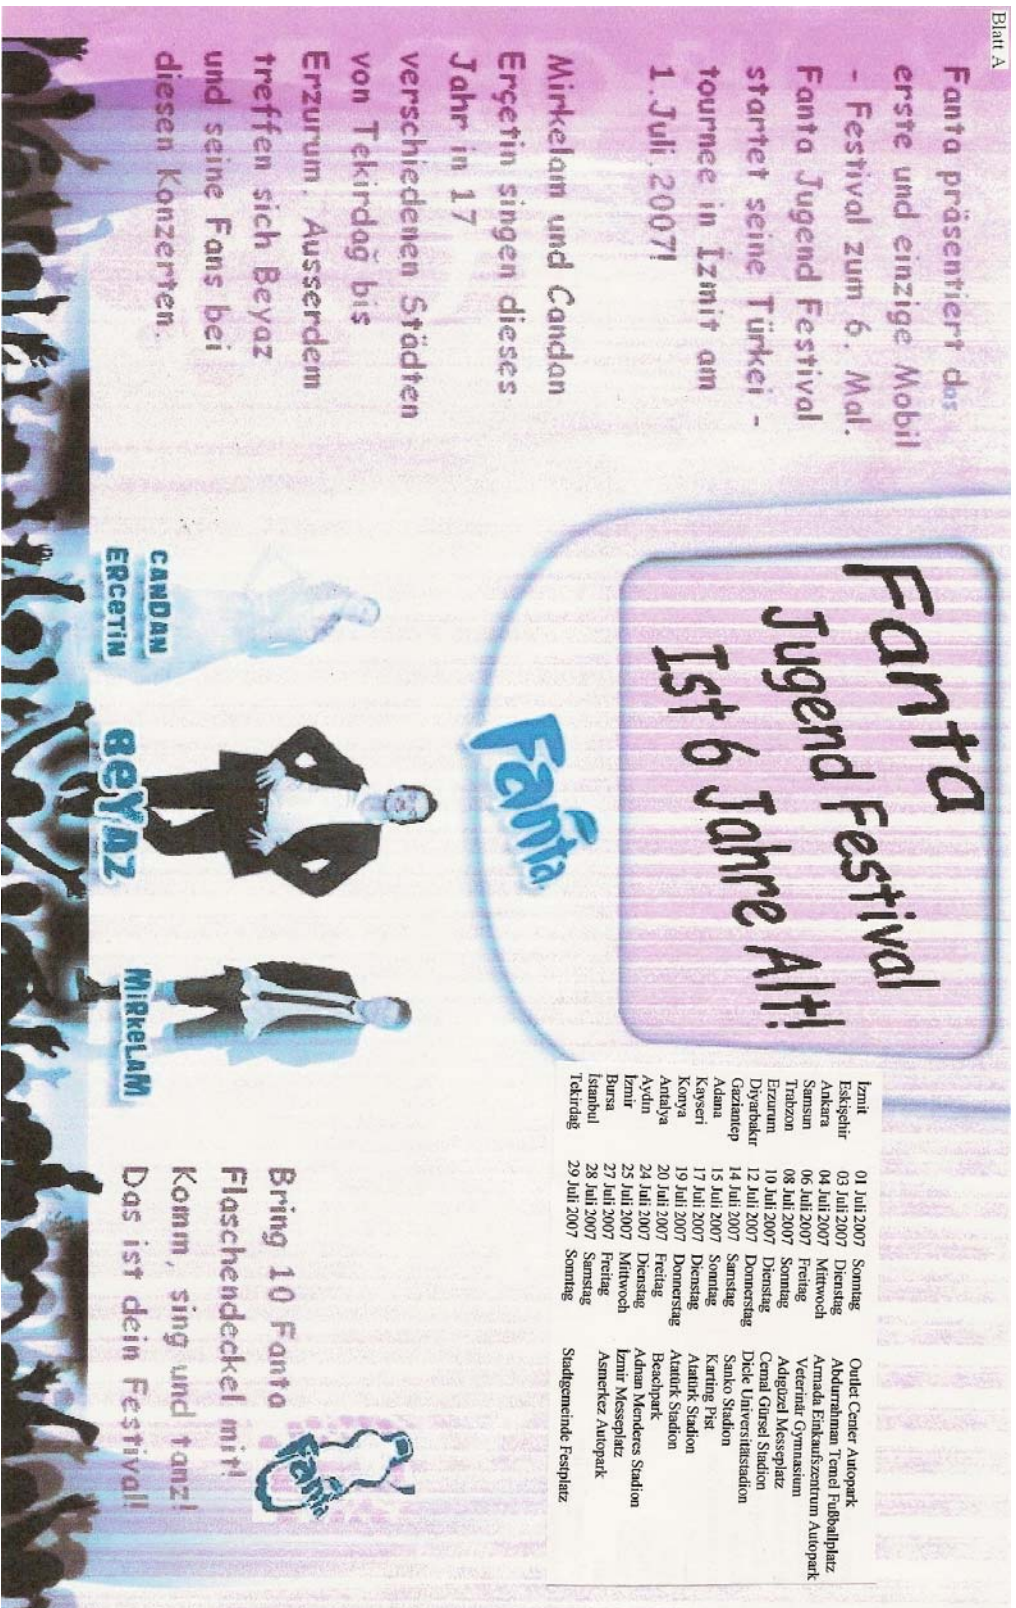 Blatt A
Fanta präsentiert das
erste und einzige Mobil
- Festival zum 6. Mal.
Fanta Jugend Festival
startet seine Türkei -
tourne in İzmit am
1.Juli.2007!
Mirkelam und Candan
Erçetin singen dieses
Jahr in 17
verschiedenen Städten
von Tekirdağ bis
Erzurum. Ausserdem
treffen sich Beyaz
und seine Fans bei
diesen Konzerten.
Fanta
Jugend Festival
Ist 6 Jahre Alt!
Fanta
CANDAN
ERCETİN
BEYAZ
MİRKELAM
İzmit 01 Juli 2007 Sonntag Outlet Center Autopark
Eskişehir 03 Juli 2007 Dienstag Abdurrahman Temel Fußballplatz
Ankara 04 Juli 2007 Mittwoch Armada Einkaufszentrum Autopark
Samsun 06 Juli 2007 Freitag Veterinär Gymnasium
Trabzon 08 Juli 2007 Sonntag Adıgüzel Messeplatz
Erzurum 10 Juli 2007 Dienstag Cemal Gürsel Stadion
Diyarbakır 12 Juli 2007 Donnerstag Dicle Universitätstadion
Gaziantep 14 Juli 2007 Samstag Sanko Stadion
Adana 15 Juli 2007 Sonntag Karting Pist
Kayseri 17 Juli 2007 Dienstag Atatürk Stadion
Konya 19 Juli 2007 Donnerstag Atatürk Stadion
Antalya 20 Juli 2007 Freitag Beachpark
Aydın 24 Juli 2007 Dienstag Adnan Menderes Stadion
İzmir 25 Juli 2007 Mittwoch İzmir Messeplatz
Bursa 27 Juli 2007 Freitag Asmerkez Autopark
İstanbul 28 Juli 2007 Samstag
Tekirdağ 29 Juli 2007 Sonntag Stadgemeinde Festplatz
Bring 10 Fanta
Flaschendeckel mit!
Komm, sing und tanz!
Das ist dein Festival!
Fanta